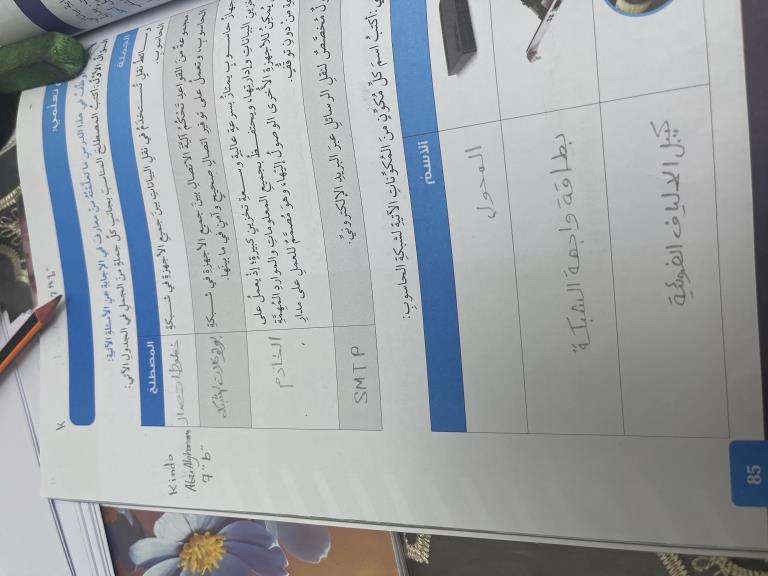 تعلمي:
في هذا الدرس ما تعلمته من معارف في الإجابة عن الأسئلة الآتية:
السؤال الأول: أكتب المصطلح المناسب بجانب كل جملة من الجمل في الجدول الآتي:
الجملة
المصطلح
وسائط نقل تُستخدم في نقل البيانات بين جميع الأجهزة في شبكة
الحاسوب.
خطوط اتصال
مجموعة من القواعد تتحكم آلية الاتصال بين جميع الأجهزة في شبكة
الحاسوب، وتعمل على توفير اتصال صحيح وآمن في ما بينها.
بروتوكولات الشبكة
جهاز حاسوب يمتاز بسرعة عالية وسعة تخزين كبيرة؛ إذ يعمل على
تخزين البيانات وإدارتها، ويحتفظ بجميع المعلومات والموارد المهمة
يمكن للأجهزة الأخرى الوصول إليها، وهو مُصمَّم للعمل على مدار
من دون توقف.
الخادم
مُخصَّص لنقل الرسائل عبر البريد الإلكتروني.
SMTP
أكتب اسم كل مُكوِّن من المُكوِّنات الآتية لشبكة الحاسوب:
الاسم
المحول
بطاقة واجهة الشبكة
كيبل الالياف الضوئية
Kinda
7 "b"
85